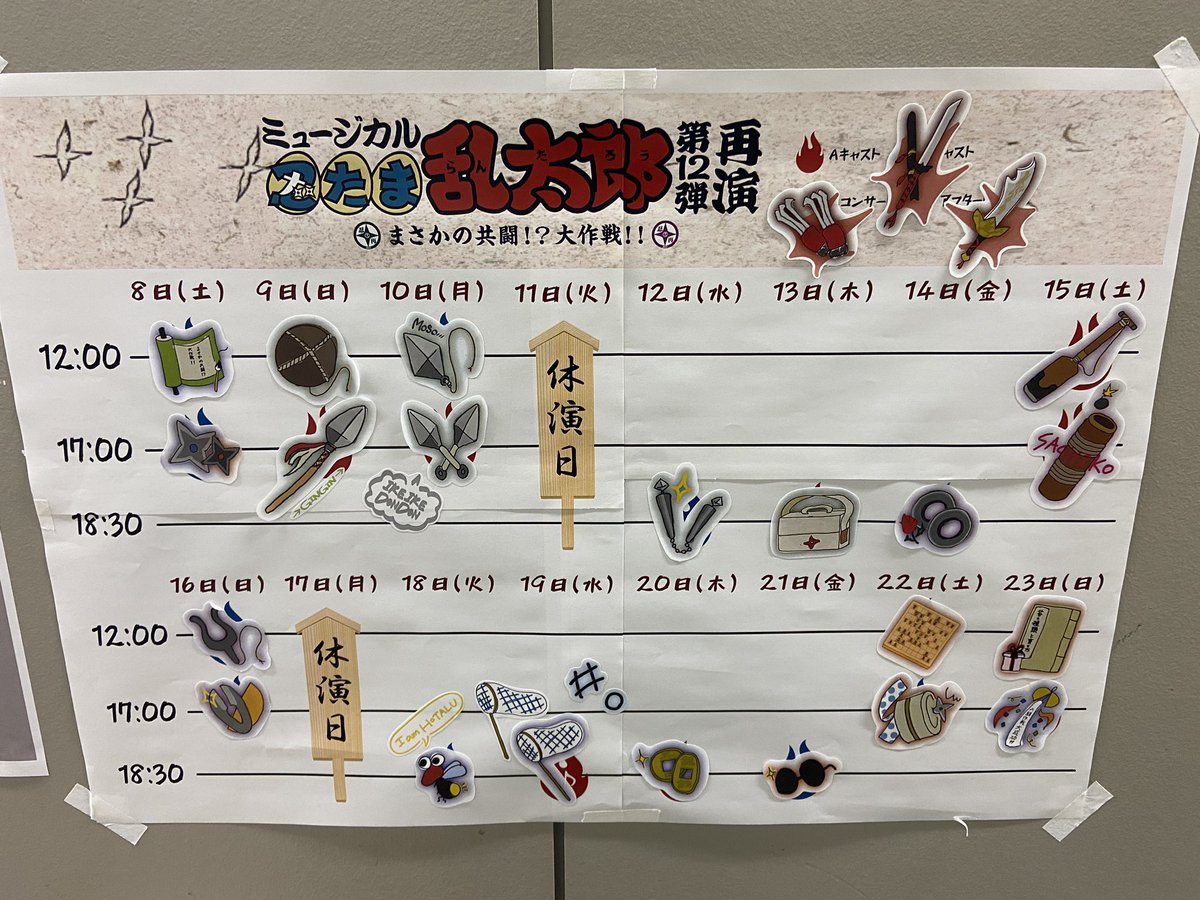 ミュージカル
忍たま乱太郎
らんたろう
第12弾
再演
まさかの共闘!?大作戦!!
Aキャスト
ャスト
コンサー
アフター
8日(土) 9日(日) 10日(月) 11日(火) 12日(水) 13日(木) 14日(金) 15日(土)
12:00
MOSO!!!
休演日
17:00
GINGIN
IKEIKE
DONDON
18:30
16日(日) 17日(月) 18日(火) 19日(水) 20日(木) 21日(金) 22日(土) 23日(日)
12:00
休演日
17:00
I am HOTALU
18:30